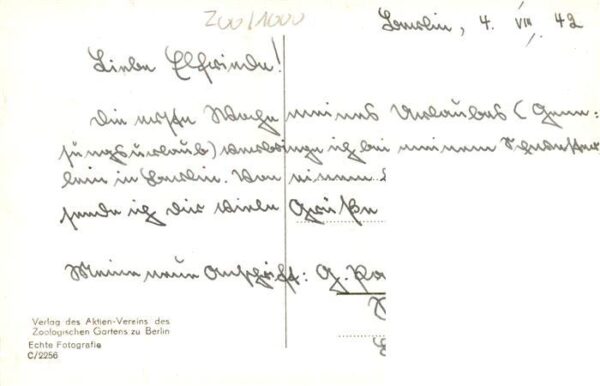 200/1000
Berlin, 4. VIII. 42
Liebe Elfriede!
Die erste Woche meines Urlaubes (Gene-
sungsurlaub) verbringe ich bei meinem Schwester
lein in Berlin. Von einem
sende ich dir viele Grüße
Meine neue Anschrift: G.
Verlag des Aktien-Vereins des
Zoologischen Gartens zu Berlin
Echte Fotografie
C/2256